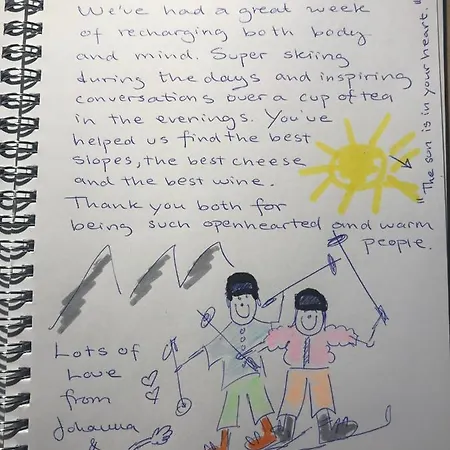 We've had a great week
of recharging both body
and mind. Super skiing
during the days and inspiring
conversations over a cup of tea
in the evenings. You've
helped us find the best
slopes, the best cheese
and the best wine.
Thank you both for
being such openhearted and warm
people.
"The sun is in your heart."
Lots of
Love
from
Johanna
&